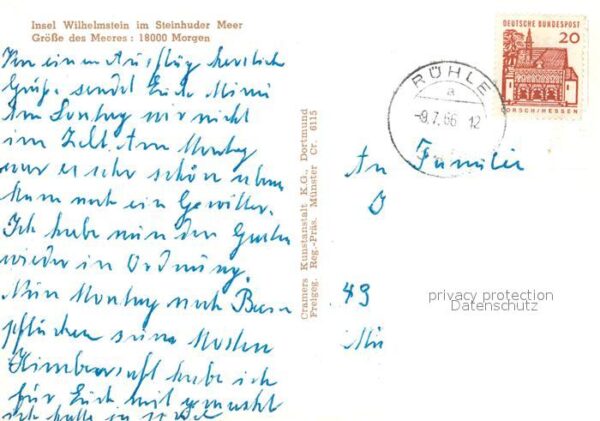 Insel Wilhelmstein im Steinhuder Meer
Größe des Meeres : 18000 Morgen
Von einem Ausflug herzliche
Grüße sendet Euch Mimi
Am Sonntag wir nicht
im Zelt. Am Montag
war es sehr schön aber
kam noch ein Gewitter.
Ich habe nun den Garten
wieder in Ordnung.
Nun Montag noch
pflücken
Himbeersaft habe ich
für Euch mit gemacht
ich
Cramers Kunstanstalt K.G., Dortmund
Freigeg. Reg.-Präs. Münster Cr. 6115
DEUTSCHE BUNDESPOST
20
LORSCH/HESSEN
RÜHLE
a
-9.7.66 12
An Familie
O
49
privacy protection
Datenschutz